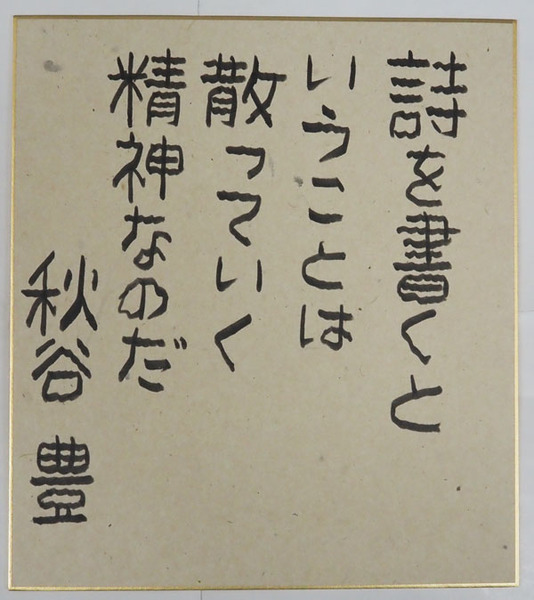 詩を書くと
いうことは
散っていく
精神なのだ
秋谷 豊